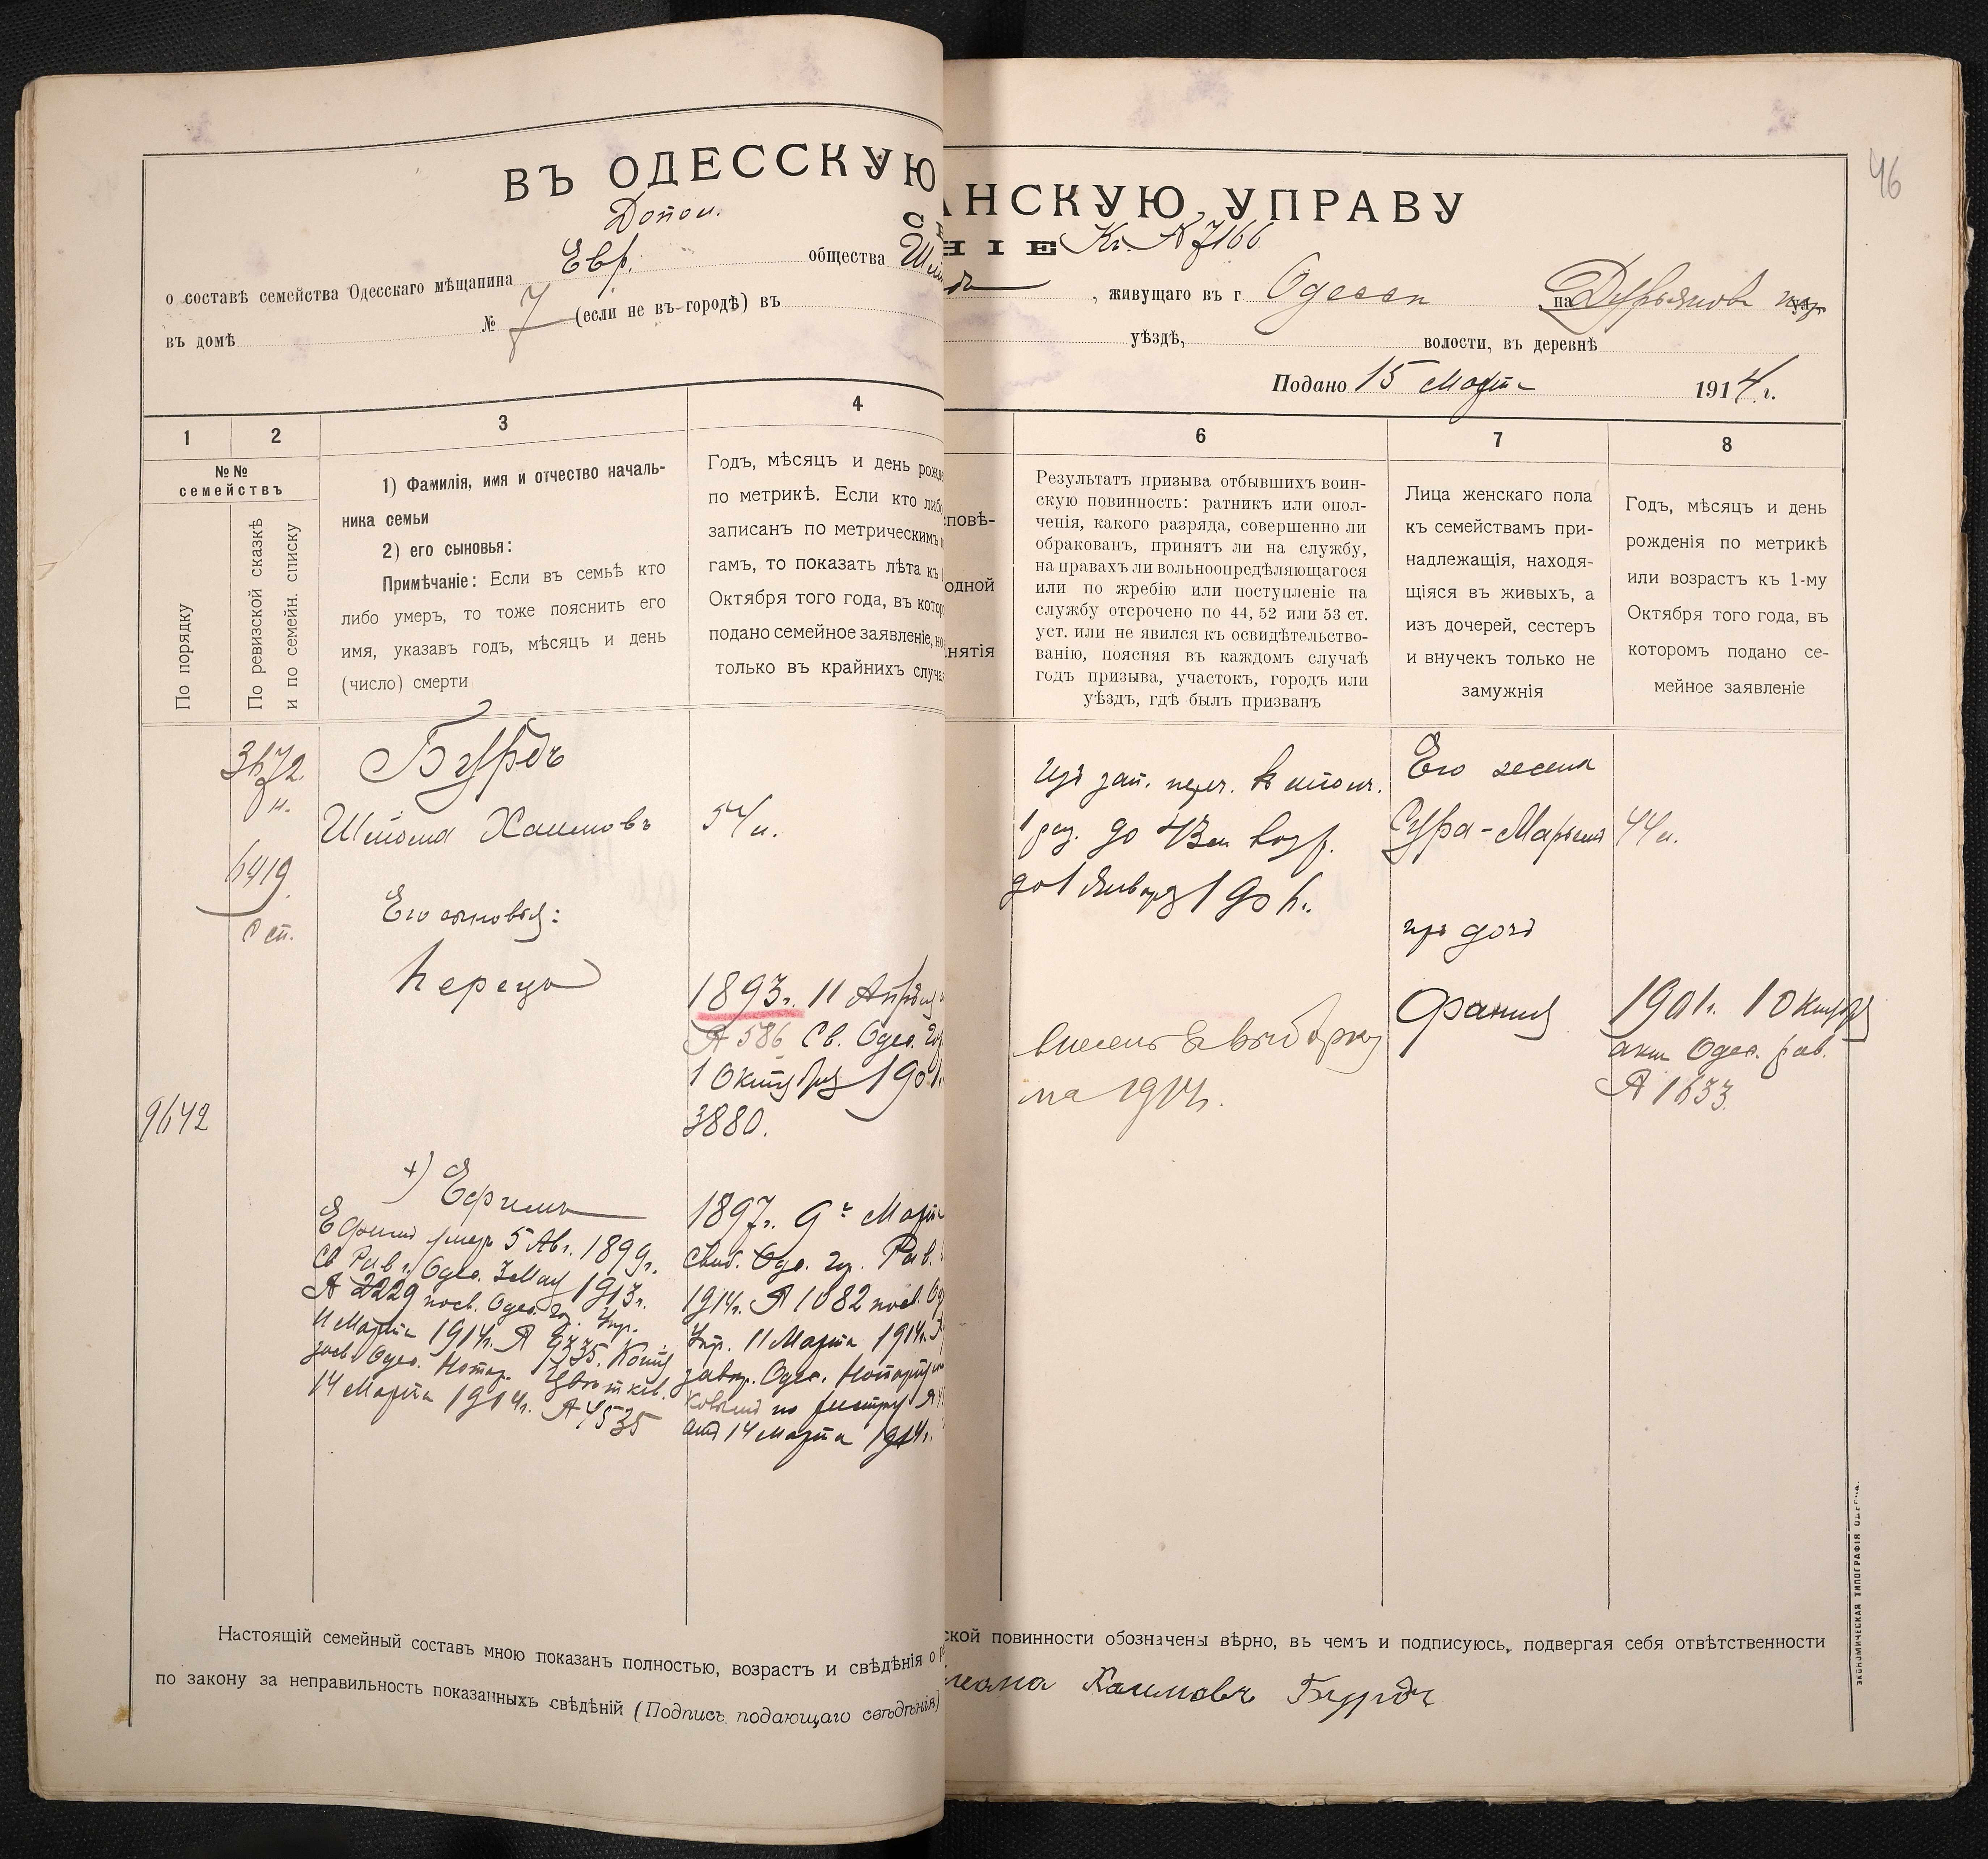 46
ВЪ ОДЕССКУЮ
АНСКУЮ УПРАВУ
Допол.
НІЕ Кв. № 7166
о составѣ семейства Одесскаго мѣщанина Евр. общества
, живущаго въ г Одессѣ на
въ домѣ № 7 (если не въ городѣ) въ
уѣздѣ, волости, въ деревнѣ
Подано 15 Марта 1914 г.
1
2
3
4
6
7
8
№№
семействъ
По порядку
По ревизской сказкѣ
и по семейн. списку
1) Фамилія, имя и отчество началь-
ника семьи
2) его сыновья:
Примѣчаніе: Если въ семьѣ кто
либо умеръ, то тоже пояснить его
имя, указавъ годъ, мѣсяцъ и день
(число) смерти
Годъ, мѣсяцъ и день рожде
по метрикѣ. Если кто либо
записанъ по метрическимъ к
гамъ, то показать лѣта къ 1
Октября того года, въ котор
подано семейное заявленіе, но
только въ крайнихъ случа
сповѣ-
одной
нятія
Результатъ призыва отбывшихъ воин-
скую повинность: ратникъ или опол-
ченія, какого разряда, совершенно ли
обракованъ, принятъ ли на службу,
на правахъ ли вольноопредѣляющагося
или по жребію или поступленіе на
службу отсрочено по 44, 52 или 53 ст.
уст. или не явился къ освидѣтельство-
ванію, поясняя въ каждомъ случаѣ
годъ призыва, участокъ, городъ или
уѣздъ, гдѣ былъ призванъ
Лица женскаго пола
къ семействамъ при-
надлежащія, находя-
щіяся въ живыхъ, а
изъ дочерей, сестеръ
и внучекъ только не
замужнія
Годъ, мѣсяцъ и день
рожденія по метрикѣ
или возрастъ къ 1-му
Октября того года, въ
которомъ подано се-
мейное заявленіе
3672
6419
с сп.
9642
Бурдъ
Шлёма Хаимовъ
54 л.
Его сыновья:
Перецъ
1893 г. 11 Апрѣля
№ 586 Св. Одес.
1 Октября 1901
3880.
+) Ефимъ
Ефимъ умеръ 5 Авг. 1899 г.
Св Рав. Одес. 3 Мая 1913 г.
№ 2229 Одес. Упр.
11 Марта 1914 г. №
Одес. Нотар.
14 Марта 1914 г. № 4535
1897 г. 9 Марта
свид. Одес. Рав.
1914 г. № 1082
Упр. 11 Марта 1914 г.
Одес.
по реестру №
14 Марта 1914 г.
1 раз. до 43 лѣт возр.
до 1 Января 1906 г.
внесенъ въ выборку
на 1914 г.
Его жена
Сура-Марьямъ
44 л.
дочь
Фания
1901 г. 1 Октября
Одес. рав.
№ 1633
Настоящій семейный составъ мною показанъ полностью, возрастъ и свѣдѣнія о
ской повинности обозначены вѣрно, въ чемъ и подписуюсь, подвергая себя отвѣтственности
по закону за неправильность показанныхъ свѣдѣній (Подпись подающаго свѣдѣнія)
Хаимовъ Бурдъ
ЭКОНОМИЧЕСКАЯ ТИПОГРАФІЯ